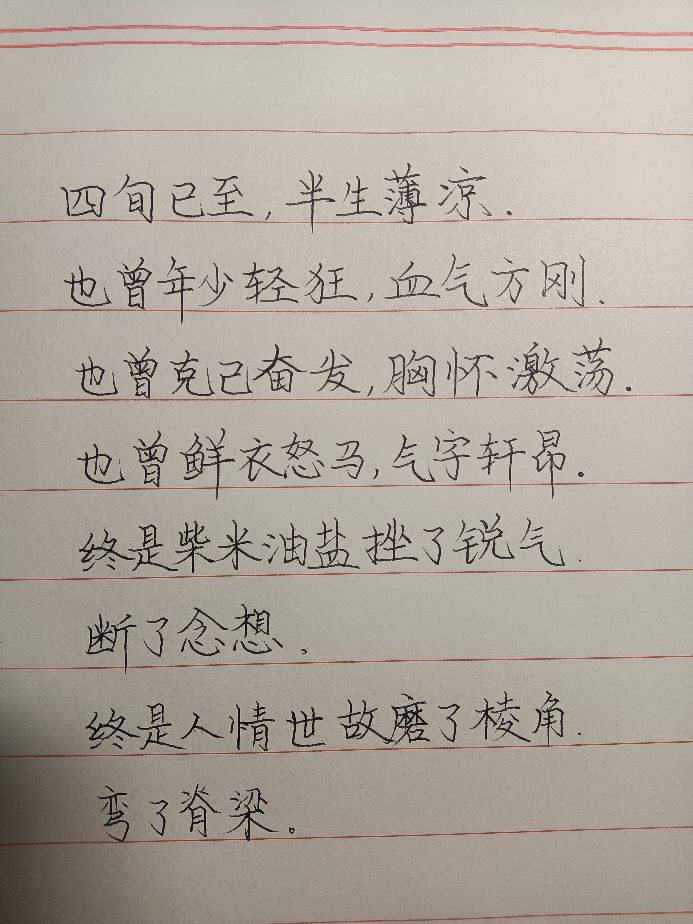 四旬已至,半生薄凉.
也曾年少轻狂,血气方刚.
也曾克己奋发,胸怀激荡.
也曾鲜衣怒马,气宇轩昂.
终是柴米油盐挫了锐气.
断了念想.
终是人情世故磨了棱角.
弯了脊梁。